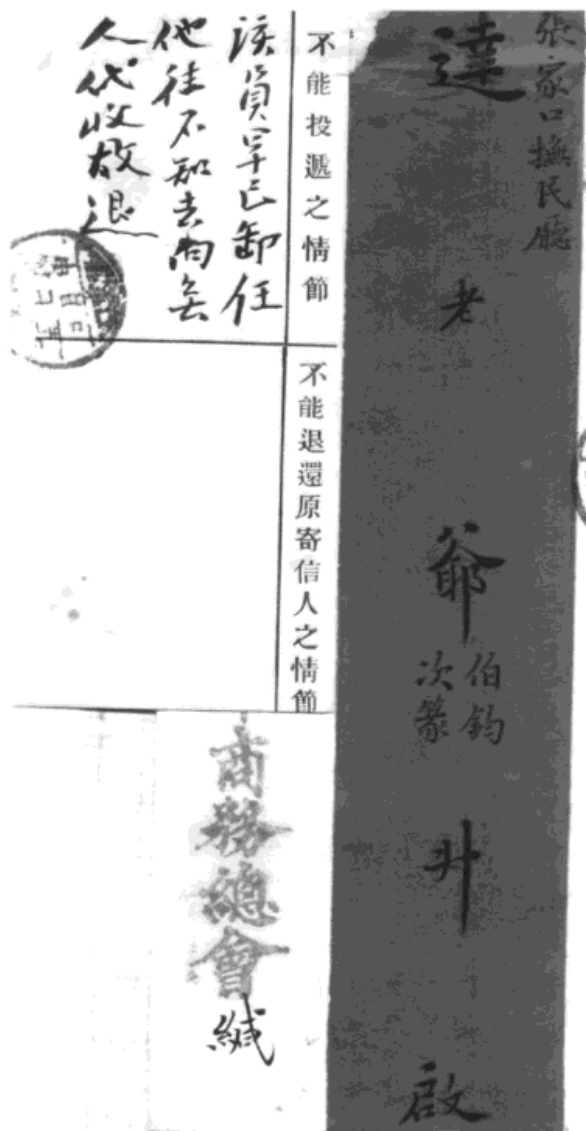 張家口撫民廳
達老爺伯鈞次篆升啟
不能投遞之情節
該員早已卸任
他往不知去向無
人代收故退
不能退還原寄信人之情節
商務總會緘